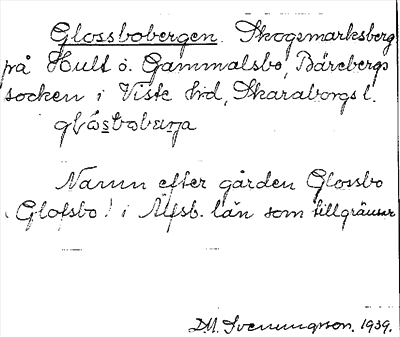 Glossbobergen. Skogsmarksberg
på Hult o. Gammalsbo, Bärebergs
socken i Viste hd, Skaraborgs l.
glåsbobærja
Namn efter gården Glossbo
(Glofsbo!) i Älfsb. län som tillgränsar
D.M. Svenningson. 1939.